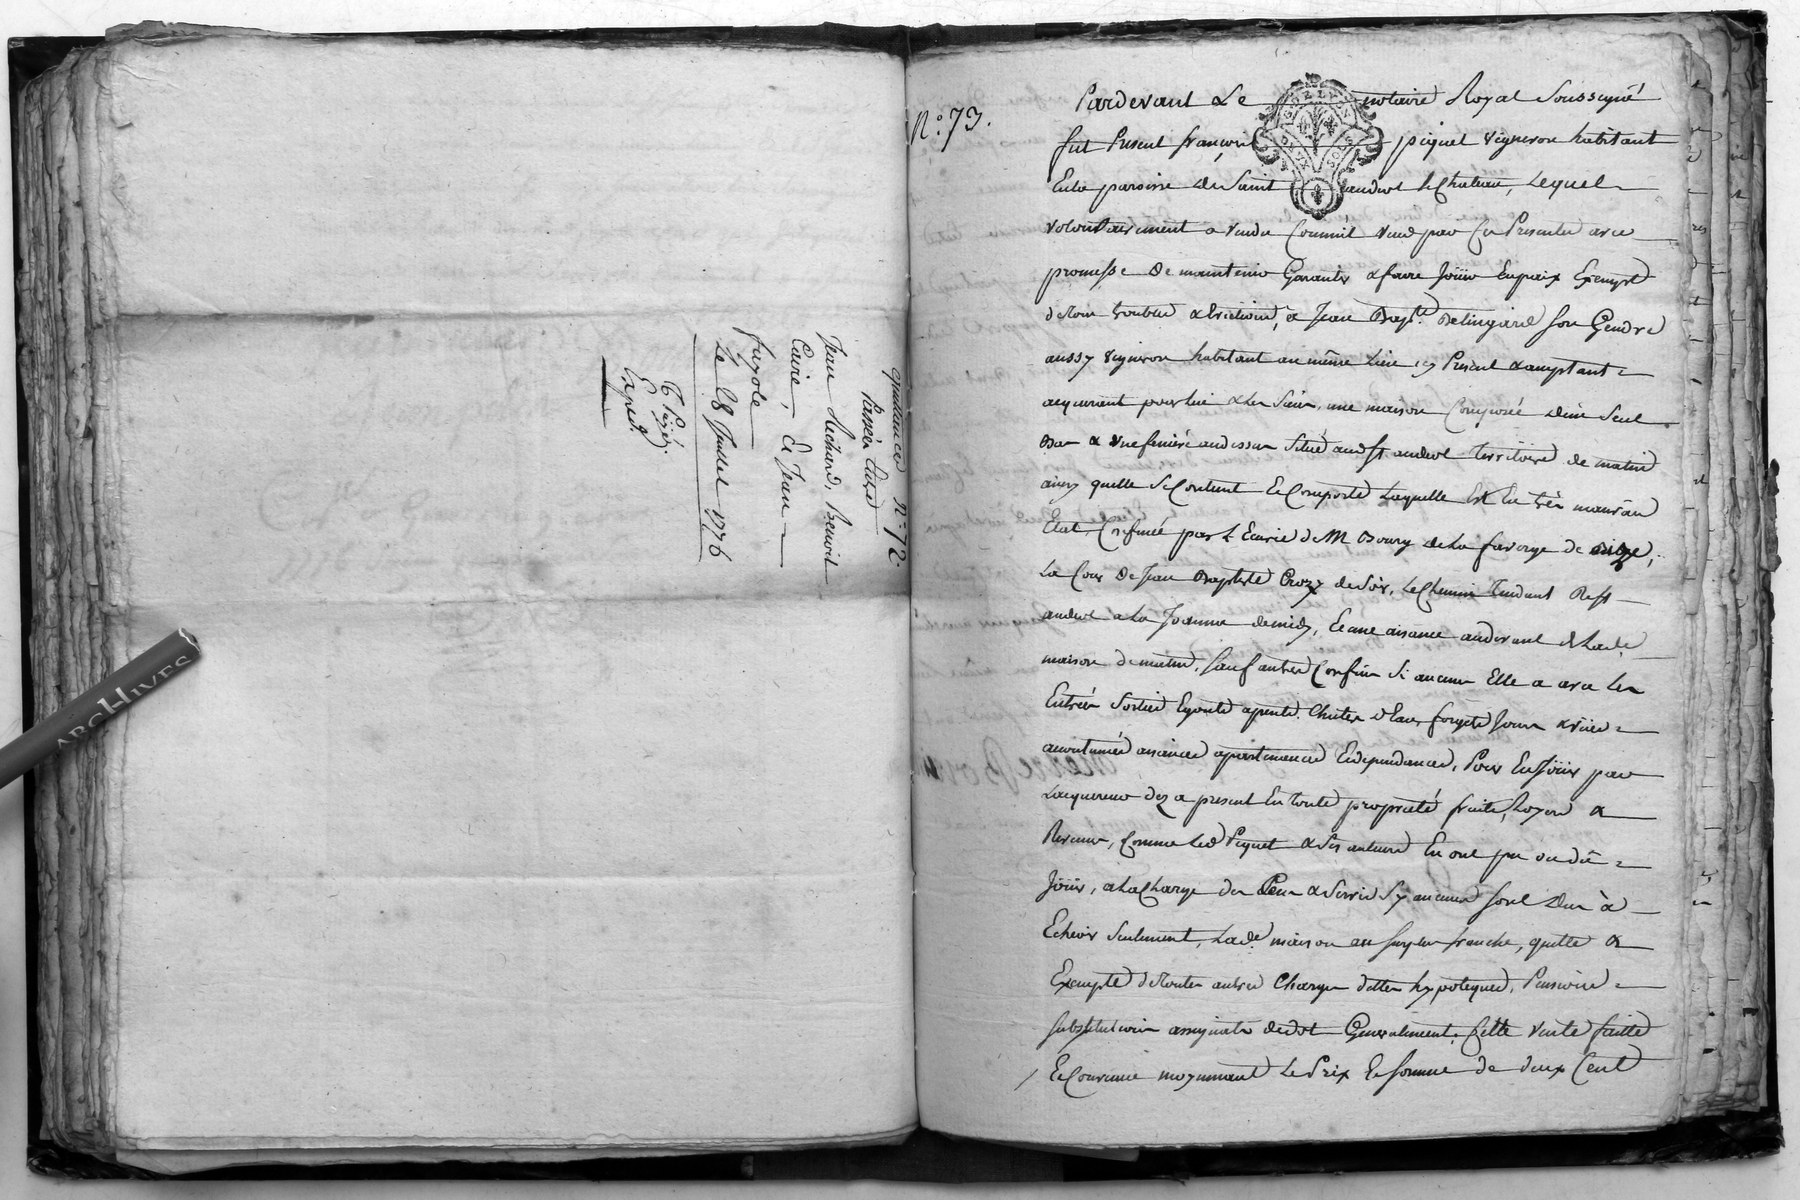 quittances N.° 72.
Passée Curé
Jean Richard, Benoist
Caire, Et Jean
fayole
Le 28 Juillet 1776
Expéd.
ARCHIVES
N.° 73.
Pardevant Le notaire Royal Soussigné
fut Present françois piquet vigneron habitant
En la paroisse de Saint andeol le Chateau, Lequel
volontairement a vendu Comme il vend par Ces Presentes avec
promesse de maintenir Garantir & faire Joüir En paix Exempt
de tous troubles & Evictions, à Jean Bapt.e Delingard son Gendre
aussy vigneron habitant au même Lieu icy Present & acceptant
acquerant pour lui & Les Siens, une maison Composée d'un Seul
Bas & une feniere au dessus Situé aud. St andeol territoire de matin
ainsy quelle Se Contient & Comporte Laquelle Est En très mauvais
Etat, Confinée par L'Ecurie de M Boury de La faverge de bize,
La Cour de Jean Baptiste Crozy de Soir, Le Chemin Tendant de St
andeol a La Joanna de midy, Et une aisance au devant de Lad.e
maison de matin, Sauf autres Confins Si aucuns Elle a avec Ses
Entrées Sorties Egouts apents Chutes d'Eaux forgets Jours & vües
accoutumées aisances apartenances & dependances, Pour En Joüir par
L'acquereur dez a present En toute propriété fruits, Loyers &
Revenus, Comme Led Piquet & Ses auteurs En ont pu ou dû
Joüir, a La Charge des Cens & Servis Sy aucuns Sont Dus à
Echeoir Seulement, Lad.e maison au Surplus franche, quitte &
Exempte de toutes autres Charges dettes hypoteques, Pensions
Substitution assignats de dot Generalement, Cette vente faitte
Et Convenue moyennant Le Prix Et Somme de deux Cent